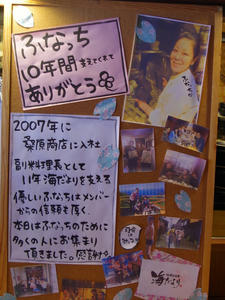 ふなっち
10年間支えてくれて
ありがとう
2007年に
桑原商店に入社
副料理長として
11年海だよりを支える
優しいふなっちはメンバー
からの信頼も厚く、
本日はふなっちのために
多くの人にお集まり
頂きました。感謝!!
海だより